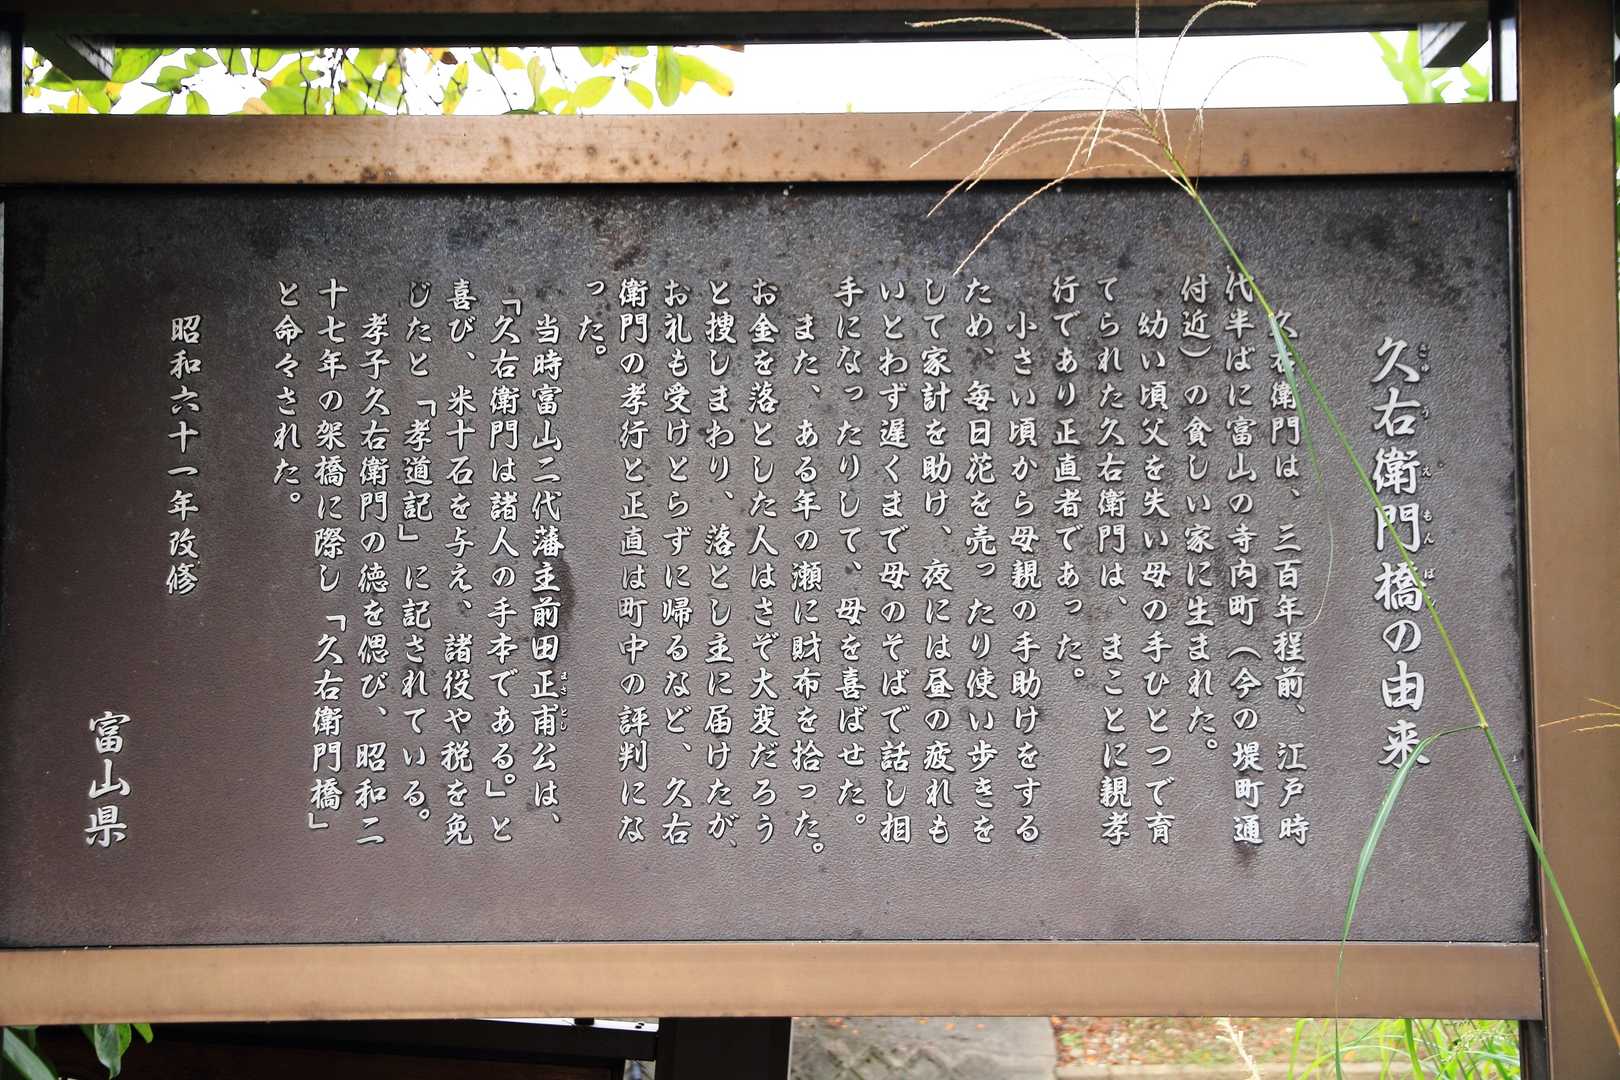 久右衛門橋の由来
きゅううえもんばし
久右衛門は、三百年程前、江戸時
代半ばに富山の寺内町（今の堤町通
付近）の貧しい家に生まれた。
幼い頃父を失い母の手ひとつで育
てられた久右衛門は、まことに親孝
行であり正直者であった。
小さい頃から母親の手助けをする
ため、毎日花を売ったり使い歩きを
して家計を助け、夜には昼の疲れも
いとわず遅くまで母のそばで話し相
手になったりして、母を喜ばせた。
また、ある年の瀬に財布を拾った。
お金を落とした人はさぞ大変だろう
と捜しまわり、落とし主に届けたが、
お礼も受けとらずに帰るなど、久右
衛門の孝行と正直は町中の評判にな
った。
当時富山二代藩主前田正甫公は、
まさとし
「久右衛門は諸人の手本である。」と
喜び、米十石を与え、諸役や税を免
じたと「孝道記」に記されている。
孝子久右衛門の徳を偲び、昭和二
十七年の架橋に際し「久右衛門橋」
と命々された。
昭和六十一年改修
富山県